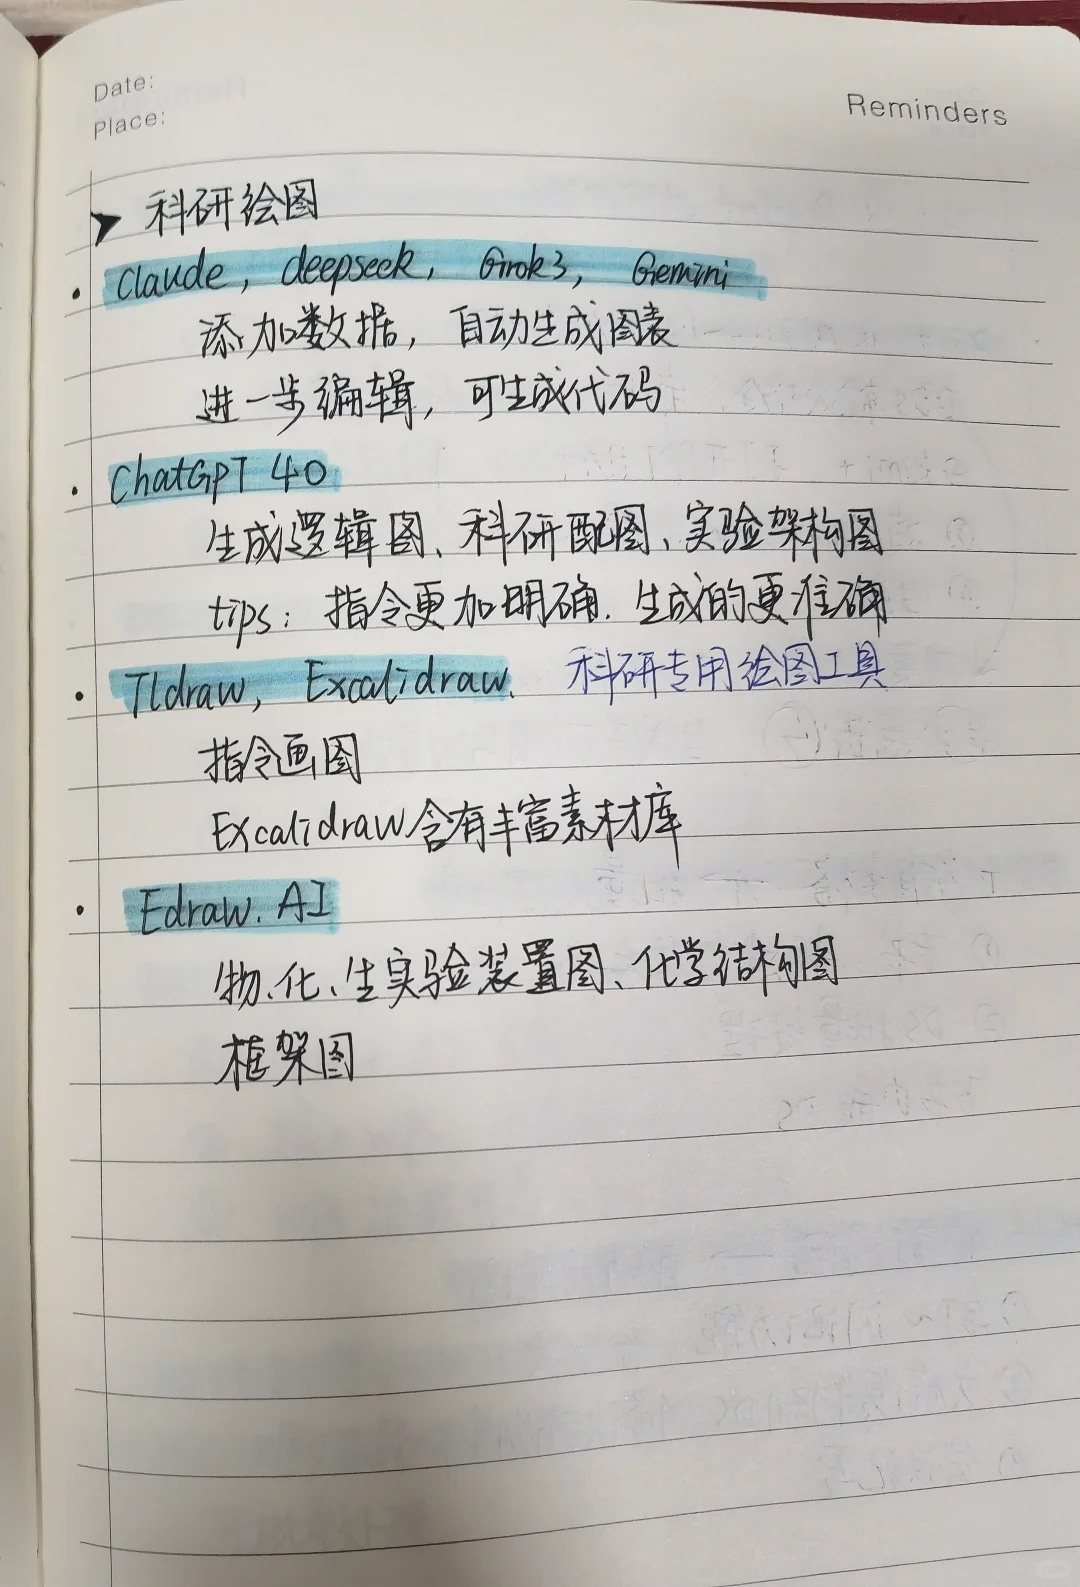 Date:
Place:
Reminders
➤ 科研绘图
• Claude, deepseek, Grok3, Gemini
添加数据, 自动生成图表
进一步编辑, 可生成代码
• ChatGPT 4O
生成逻辑图、科研配图、实验架构图
tips: 指令更加明确. 生成的更准确
• Tldraw, Excalidraw. 科研专用绘图工具
指令画图
Excalidraw含有丰富素材库
• Edraw. AI
物、化、生实验装置图、化学结构图
框架图